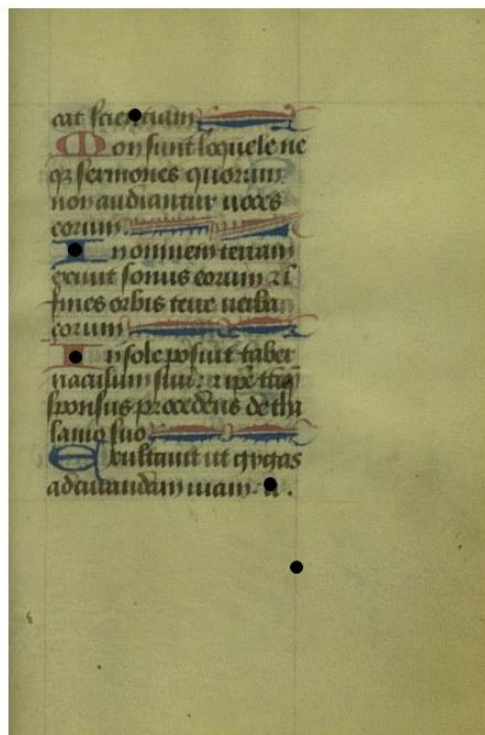 cat scientiam
Non sunt loquele ne
qz sermones quorum
non audiantur uoces
eorum
In omnem terram
exiuit sonus eorum et ī
fines orbis terre uerba
eorum
In sole posuit taber
naculum suū et ipe tāq̄
sponsus procedens de tha
lamo suo
Exultauit ut gygas
ad currendam uiam